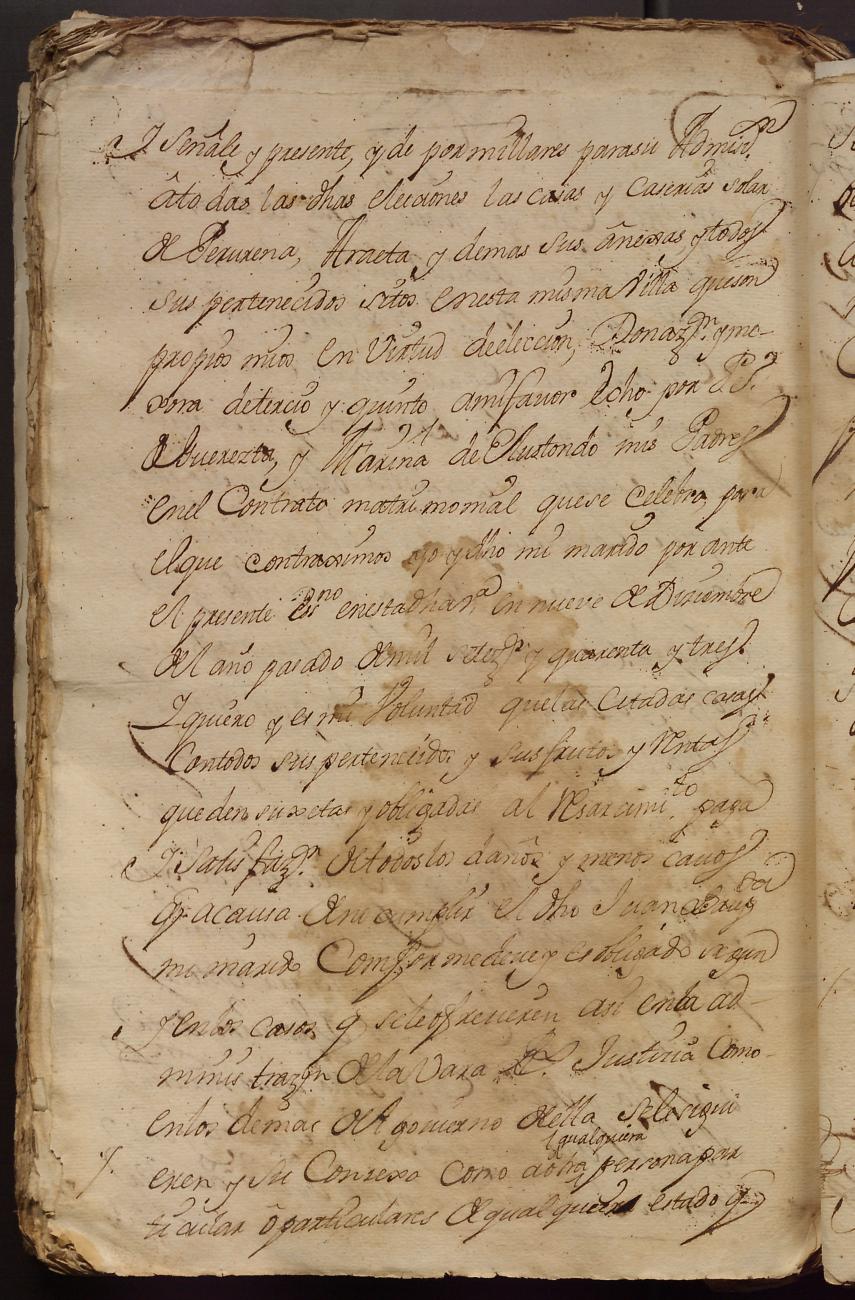 Y Señale y presente, y de por millares para su Admisn.
â todas las dhas elecciones las casas y Caserias solar
de Perurena, Araeta, y demas sus ânexas y todos
sus pertenecidos sitos en esta misma Villa que son
propios mios en Virtud de eleccion, Donazn. y me-
xora de tercio y quinto a mi favor Echo por
y Marina de Elustondo mis Padres
en el Contrato matrimonial que se celebro para
el que contraximos yo y dho mi marido por ante
el presente essno en esta dha va en nueve de Diziembre
del año pasado de mil setezs y quarenta y tres.
Y quiero y es mi Voluntad que las Citadas casas
Con todos sus pertenecidos y sus frutos y Rentas
queden suxetas y obligadas al Resarcimto. paga
Y Satisfazn. de todos los daños y menos cavos
q. a causa de no cumplir el dho Juan
mi marido Comforme deve y es obligado segun
y en los casos q se le ofrecieren asi en la ad-
ministrazn de la Vara Justicia Como
en los demas del govierno della se le sigui
eren y su Conzexo Como a otra qualquiera persona par
ticular ô particulares de qualquiera estado q.